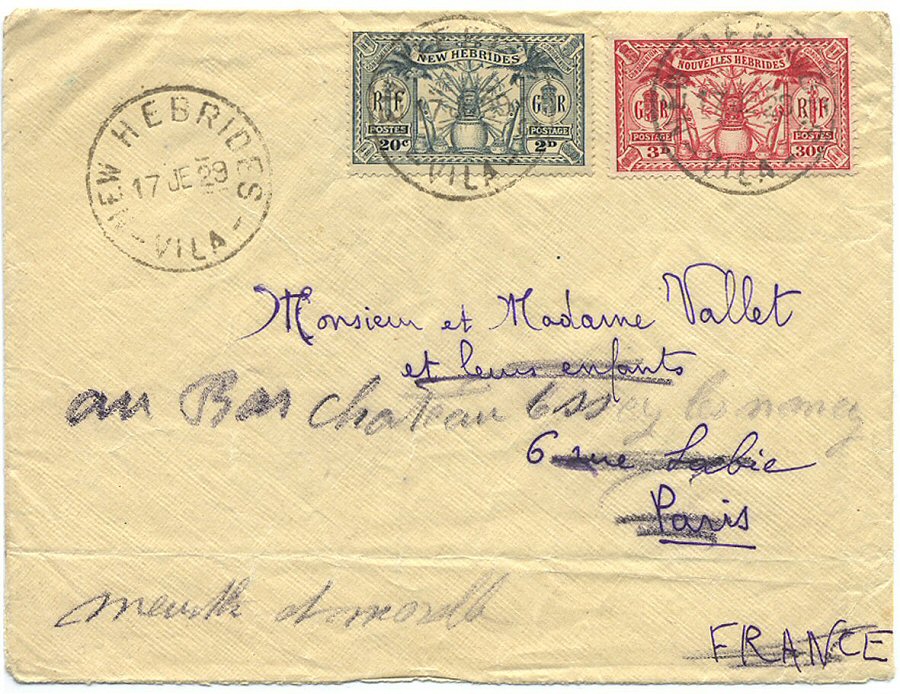 NEW HEBRIDES
17 JE 29
VILA
NEW HEBRIDES
RF GR
POSTES POSTAGE
20c 2D
VILA
NOUVELLES HEBRIDES
GR RF
POSTAGE POSTES
3D 30c
VILA
Monsieur et Madame Vallet
et leurs enfants
au Bas chateau Essey les nancy
6 rue Labie
Paris
meurthe et moselle
FRANCE